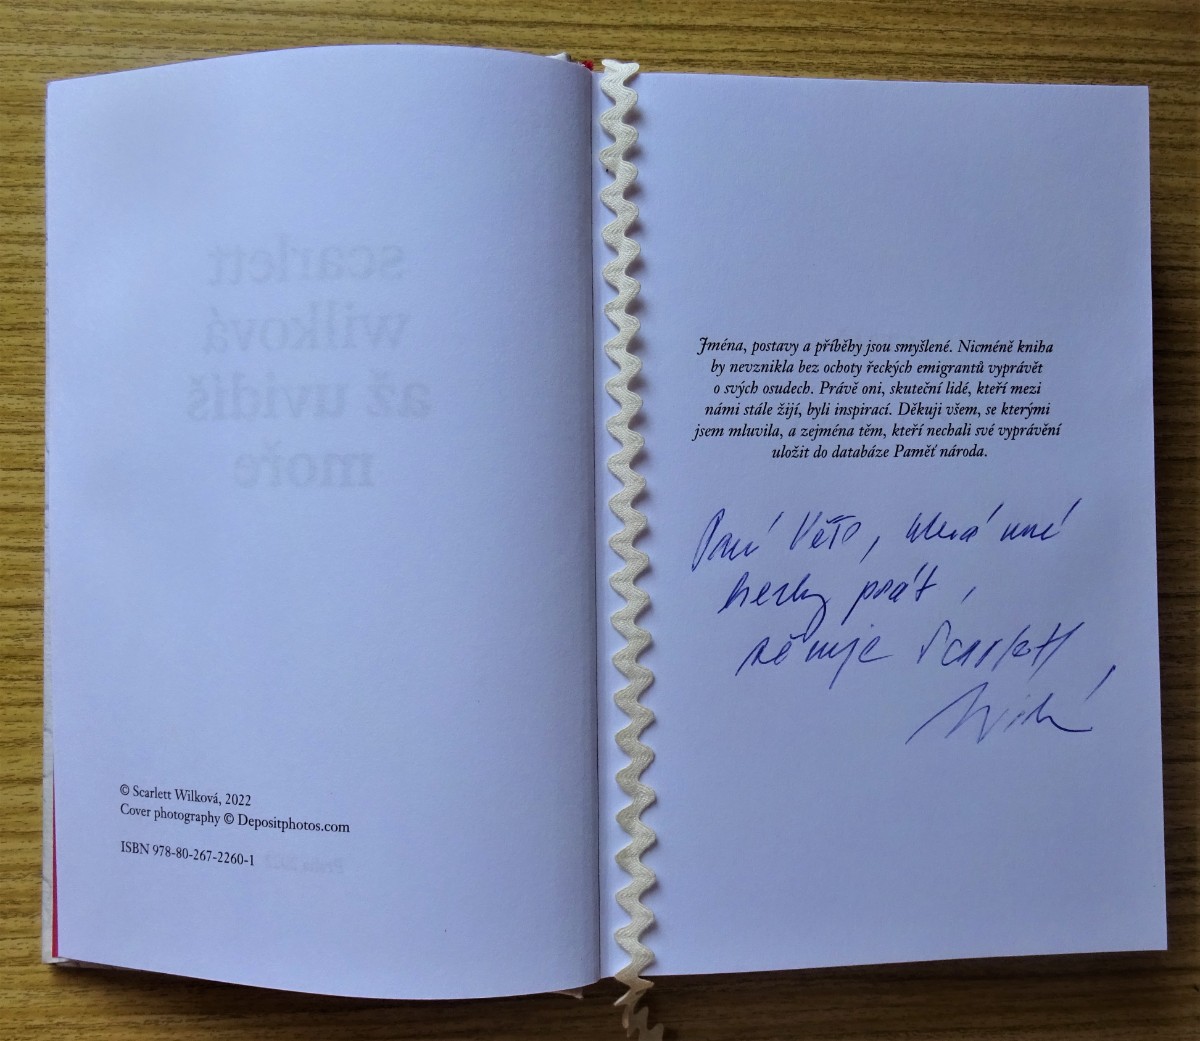 scarlett
wilková
až uvidíš
moře
© Scarlett Wilková, 2022
Cover photography © Depositphotos.com
ISBN 978-80-267-2260-1
Jména, postavy a příběhy jsou smyšlené. Nicméně kniha
by nevznikla bez ochoty řeckých emigrantů vyprávět
o svých osudech. Právě oni, skuteční lidé, kteří mezi
námi stále žijí, byli inspirací. Děkuji všem, se kterými
jsem mluvila, a zejména těm, kteří nechali své vyprávění
uložit do databáze Paměť národa.
Paní Věře, která umí
hezky psát,
věnuje Scarlett